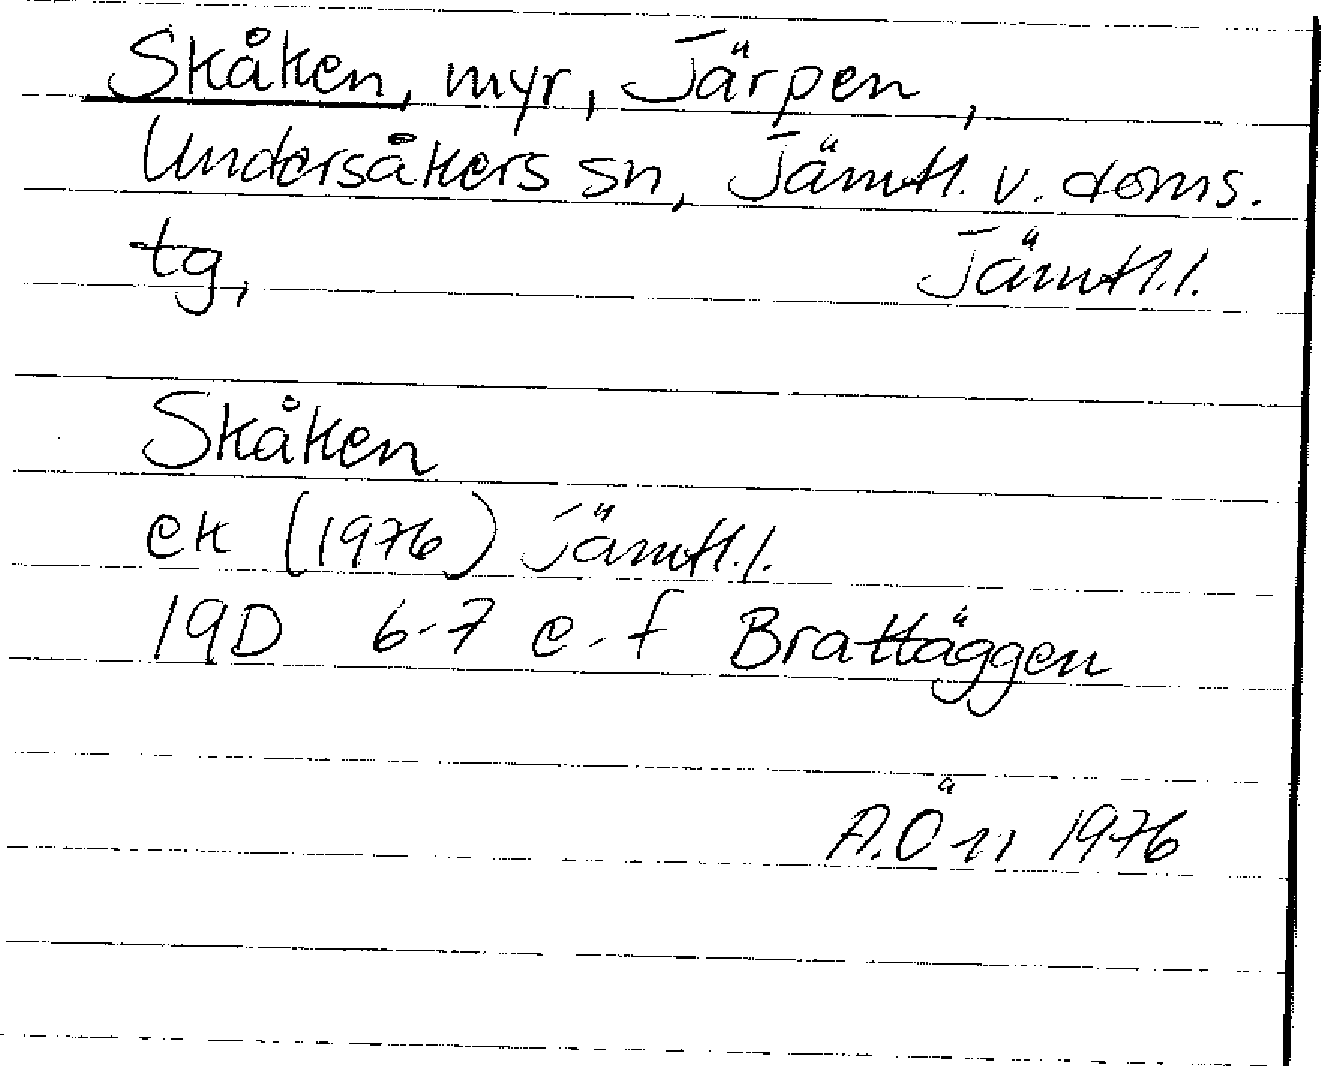 Skåken, myr, Järpen,
Undersåkers sn, Jämtl. v. doms.
tg, Jämtl.l.
Skåken
ek (1976) Jämtl.l.
19D 6-7 e-f Brattäggen
A.Ö 11 1976